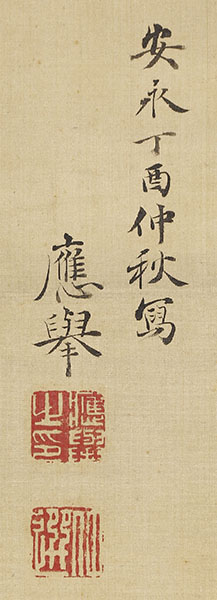 安永丁酉仲秋寫
應擧
應擧之印
仲選